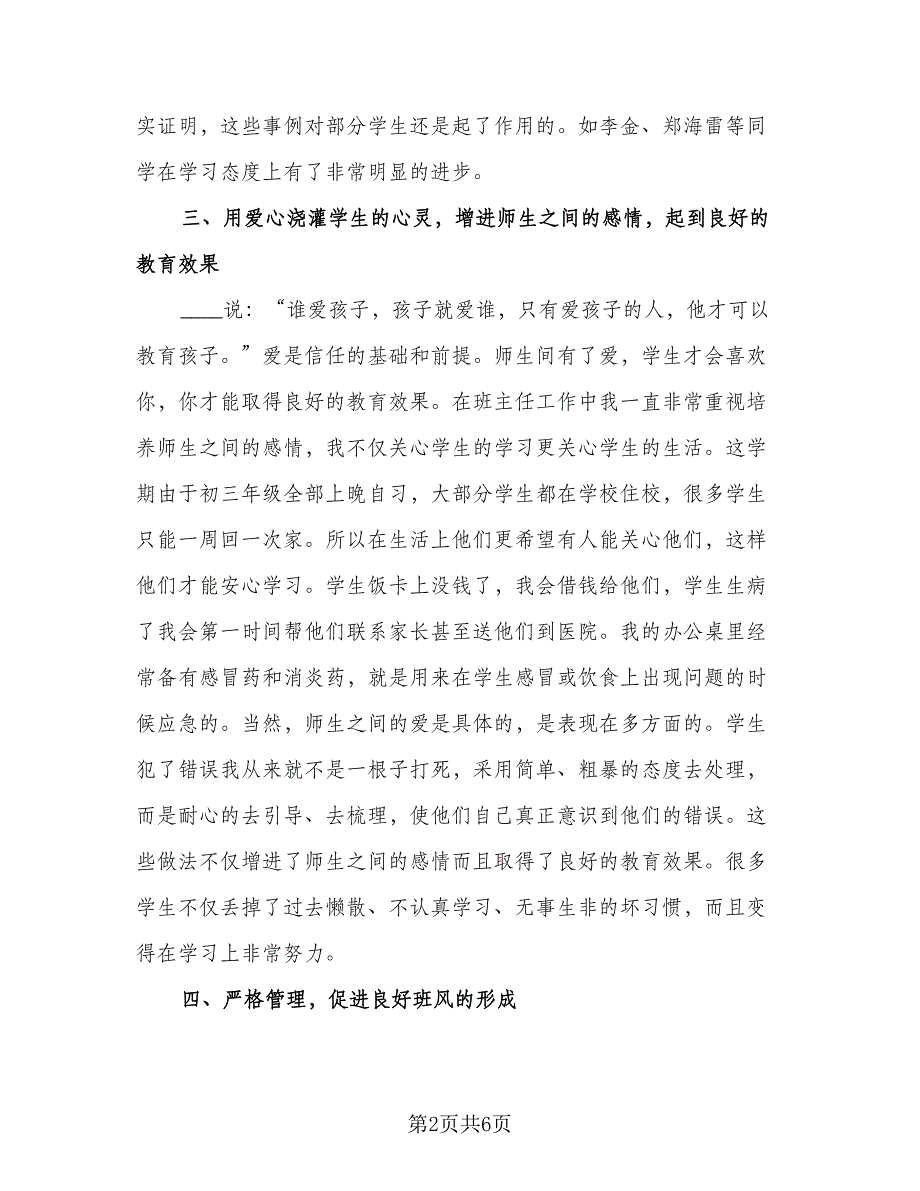 实证明，这些事例对部分学生还是起了作用的。如李金、郑海雷等同
学在学习态度上有了非常明显的进步。
三、用爱心浇灌学生的心灵，增进师生之间的感情，起到良好的
教育效果
____说：“谁爱孩子，孩子就爱谁，只有爱孩子的人，他才可以
教育孩子。”爱是信任的基础和前提。师生间有了爱，学生才会喜欢
你，你才能取得良好的教育效果。在班主任工作中我一直非常重视培
养师生之间的感情，我不仅关心学生的学习更关心学生的生活。这学
期由于初三年级全部上晚自习，大部分学生都在学校住校，很多学生
只能一周回一次家。所以在生活上他们更希望有人能关心他们，这样
他们才能安心学习。学生饭卡上没钱了，我会借钱给他们，学生生病
了我会第一时间帮他们联系家长甚至送他们到医院。我的办公桌里经
常备有感冒药和消炎药，就是用来在学生感冒或饮食上出现问题的时
候应急的。当然，师生之间的爱是具体的，是表现在多方面的。学生
犯了错误我从来就不是一根子打死，采用简单、粗暴的态度去处理，
而是耐心的去引导、去梳理，使他们自己真正意识到他们的错误。这
些做法不仅增进了师生之间的感情而且取得了良好的教育效果。很多
学生不仅丢掉了过去懒散、不认真学习、无事生非的坏习惯，而且变
得在学习上非常努力。
四、严格管理，促进良好班风的形成
第2页共6页